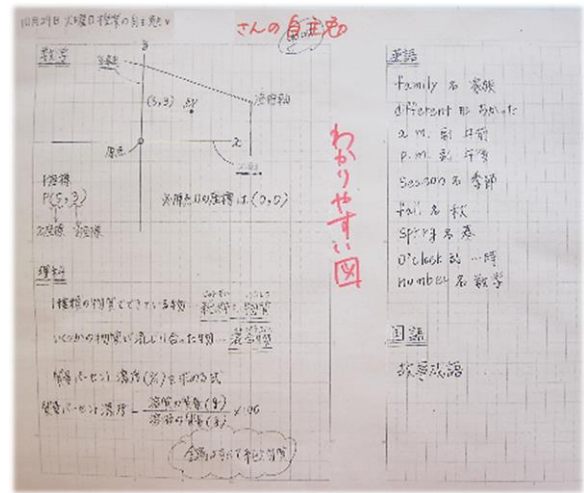 10月29日 火曜日 授業の自主勉
さんの自主勉
数学
y軸
(5,3)
座標軸
x
原点
x軸
座標
P(5,3)
x座標 y座標
※原点Oの座標は(0,0)
わかりやすい図
理科
1種類の物質でできている物 … 純粋な物質
いくつかの物質が混じり合った物 … 混合物
質量パーセント濃度(%)を求める式
質量パーセント濃度 = 溶質の質量(g) / 溶液の質量(g) ×100
英語
family 名 家族
different 形
a.m. 副 午前
p.m. 副 午後
season 名 季節
fall 名 秋
spring 名 春
o'clock 副 一時
number 名 数字
国語
故事成語